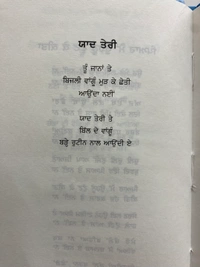 ਯਾਦ ਤੇਰੀ
ਤੂੰ ਜਾਨਾਂ ਤੇ
ਬਿਜਲੀ ਵਾਂਗੂੰ ਮੁੜ ਕੇ ਛੇਤੀ
ਆਉਂਦਾ ਨਈਂ
ਯਾਦ ਤੇਰੀ ਤੇ
ਬਿੱਲ ਦੇ ਵਾਂਗੂੰ
ਬੜੇ ਰੁਟੀਨ ਨਾਲ ਆਉਂਦੀ ਏ